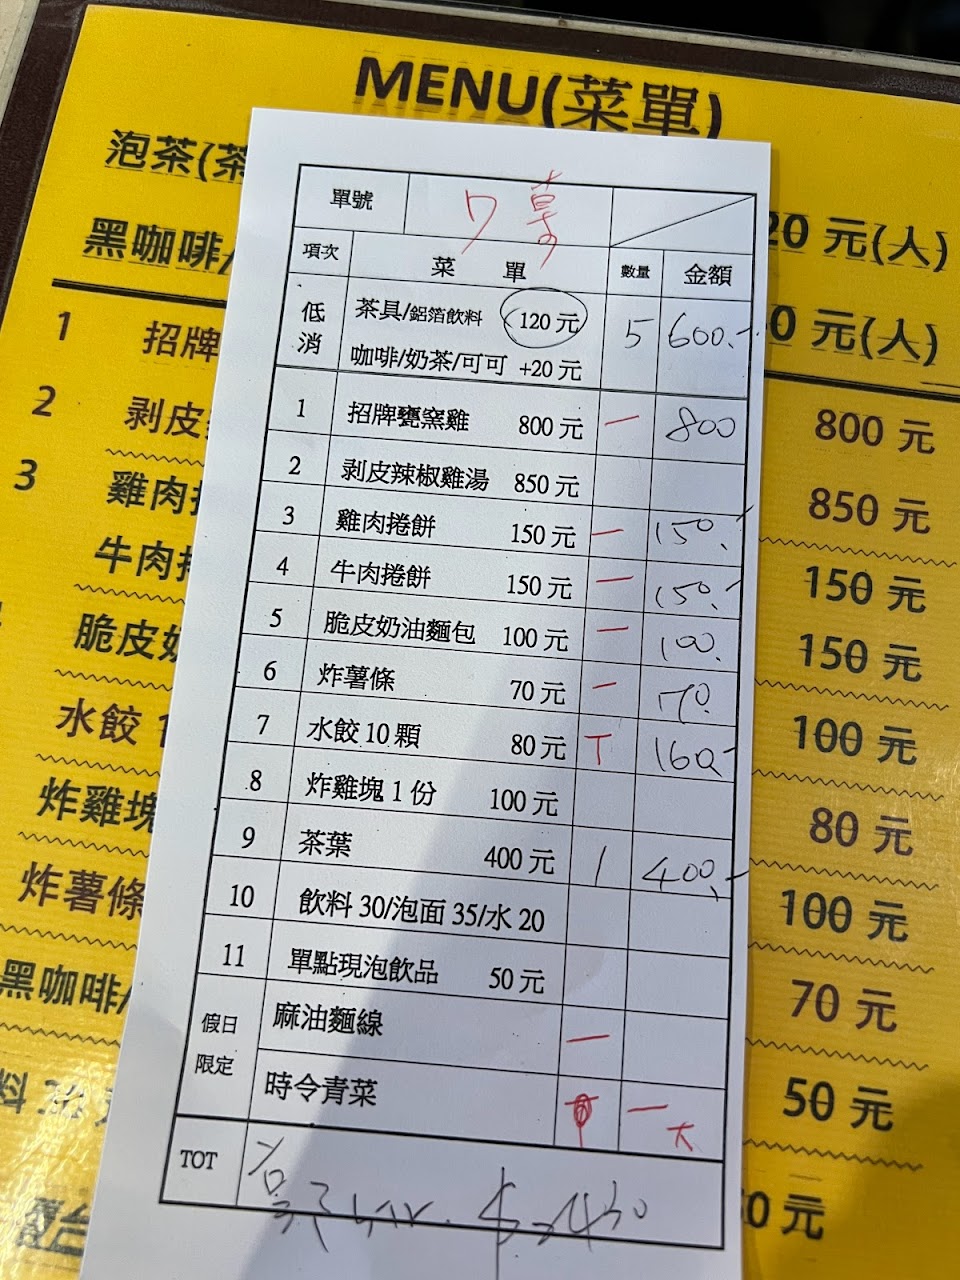 MENU(菜單)
泡茶(茶
20 元(人)
黑咖啡/
0 元(人)
1 招牌
800 元
2 剥皮
850 元
3 雞肉捲
150 元
牛肉捲
150 元
脆皮奶
100 元
水餃 1
80 元
炸雞塊
100 元
炸薯條
70 元
黑咖啡/
50 元
料 30
0 元
單號 7
項次 菜 單 數量 金額
低消 茶具/鋁箔飲料 120 元 5 600.-
咖啡/奶茶/可可 +20 元
1 招牌甕窯雞 800 元 一 800
2 剥皮辣椒雞湯 850 元
3 雞肉捲餅 150 元 一 150.-
4 牛肉捲餅 150 元 一 150.-
5 脆皮奶油麵包 100 元 一 100.
6 炸薯條 70 元 一 70.
7 水餃 10 顆 80 元 T 160.-
8 炸雞塊 1 份 100 元
9 茶葉 400 元 1 400.-
10 飲料 30/泡面 35/水 20
11 單點現泡飲品 50 元
假日限定 麻油麵線 一
時令青菜 一 大
TOT $2430